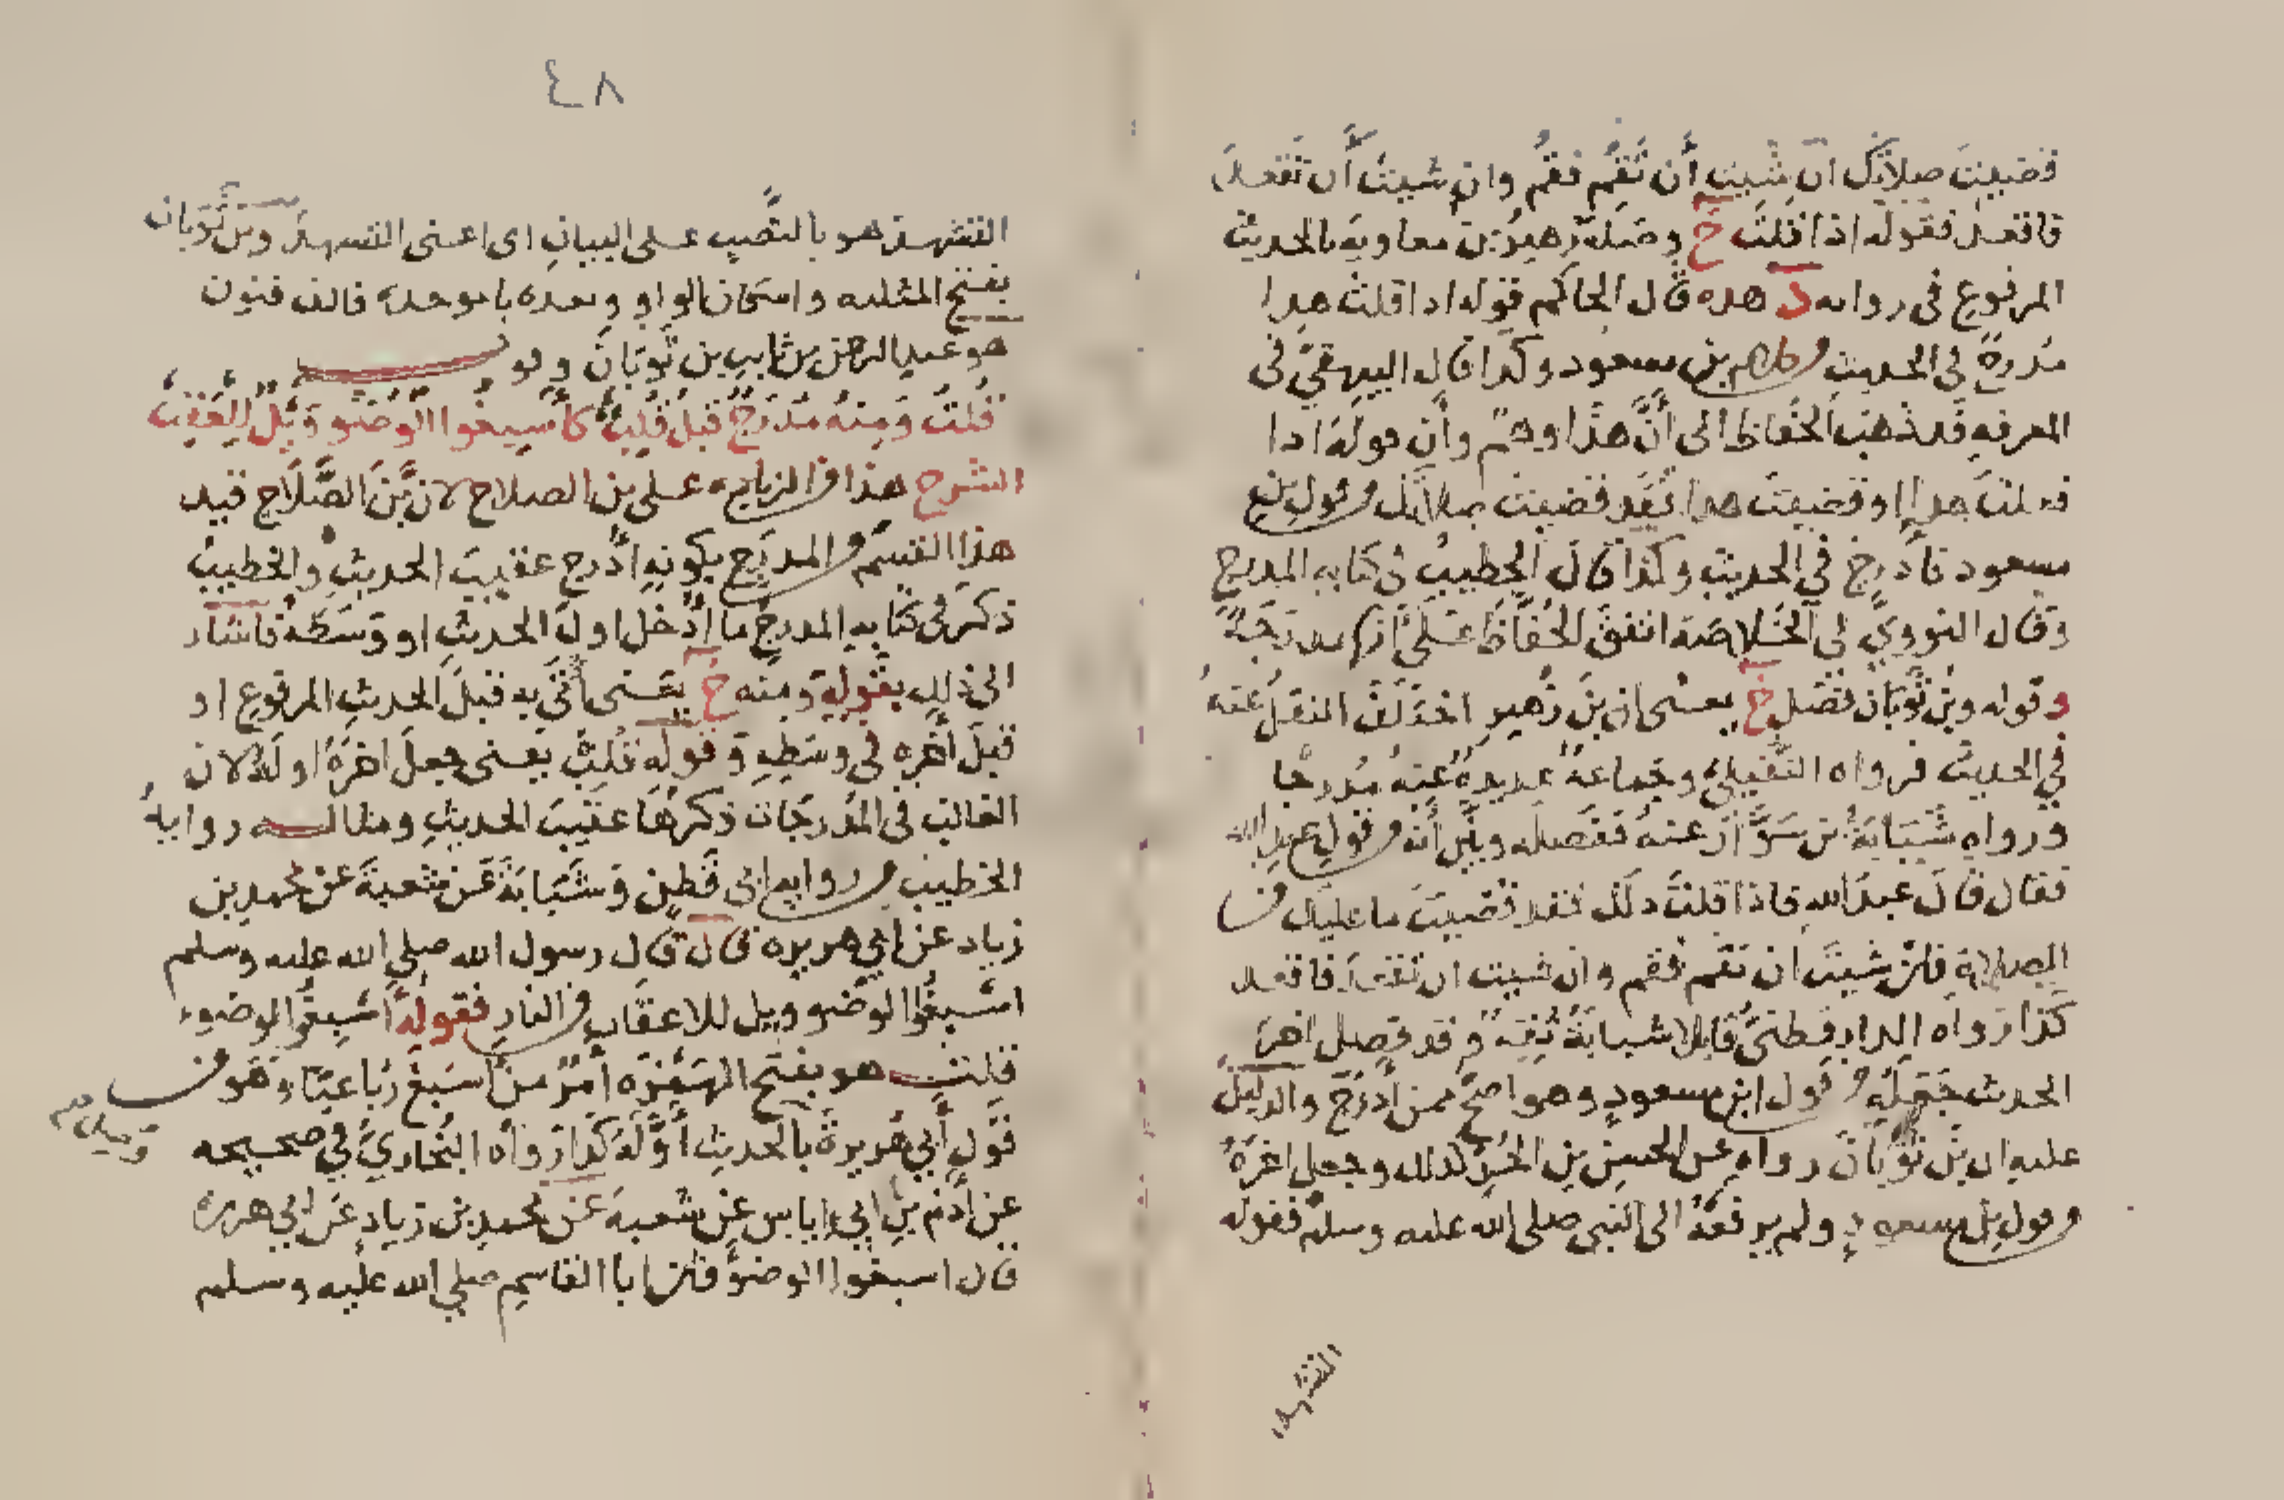 فقضيت صلاتك ان شيت أن تقم فقم وان شيت أن تقعد
فاقعد فقوله اذا قلت خ وصله زهير بن معاويه بالحديث
المرفوع فى روايه د هذه قال الحاكم قوله اذا قلت هذا
مدرج في الحديث من كلام بن مسعود وكذا قال البيهقي فى
المعرفه قد ذهب الحفاظ الى أن هذا وهم وأن قوله اذا
فعلت هذا او قضيت هذا فقد قضيت صلاتك من قول بن
مسعود فأدرج في الحديث وكذا قال الخطيب في كتابه المدرج
وقال النووي في الخلاصة اتفق الحفاظ على أنها مدرجة
وقوله وبن ثوبان فصل خ يعنى ان بن زهير اختلف النقل عنه
في الحديث فرواه النفيلي وجماعة عديدة عنه مدرجا
ورواه شبابة بن سوار عنه ففصله وبين أنه من قول عبد الله
فقال قال عبد الله فاذا قلت ذلك فقد قضيت ما عليك من
الصلاة فان شيت ان تقم فقم وان شيت ان تقعد فاقعد
كذا رواه الدارقطني قايلا شبابة ثقة وقد فصل اخر
الحديث جعله من قول ابن مسعود وهو اصح ممن أدرج والدليل
عليه ان بن ثوبان رواه عن الحسن بن الحر كذلك وجعل اخره
من قول بن مسعود ولم يرفعه الى النبي صلى الله عليه وسلم فقوله
التشهد
٤٨
التشهد هو بالنصب على البيان اى اعنى التشهد وبن ثوبان
بفتح المثلثه واسكان الواو وبعده با موحده فالف فنون
هو عبد الرحمن بن ثابت بن ثوبان وقو
قلت ومنه مدرج قبل قلب كأسبغوا الوضو ويل للعقب
الشرح هذا من الزياده على بن الصلاح لان بن الصلاح قيد
هذا القسم من المدرج بكونه ادرج عقيب الحديث والخطيب
ذكر في كتابه المدرج ما أدخل اول الحديث او وسطه فاشار
الى ذلك بقوله ومنه خ يعنى أتى به قبل الحديث المرفوع او
قبل أخره في وسطه وقوله قلب يعنى جعل اخره اوله لان
الغالب في المدرجات ذكرها عقيب الحديث ومثاله روايه
الخطيب من روايه ابي قطن وشبابة عن شعبة عن محمد بن
زياد عن ابي هريره قال قال رسول الله صلى الله عليه وسلم
اسبغوا الوضو ويل للاعقاب من النار فقوله أسبغوا الوضوء
قلب هو بفتح الهمزه أمر من أسبغ رباعيا وهو من
قول أبي هريرة بالحديث أوله كذا رواه البخاري في صحيحه
عن أدم بن ابي اياس عن شعبة عن محمد بن زياد عن ابي هريره
قال اسبغوا الوضو فان ابا القاسم صلي الله عليه وسلم